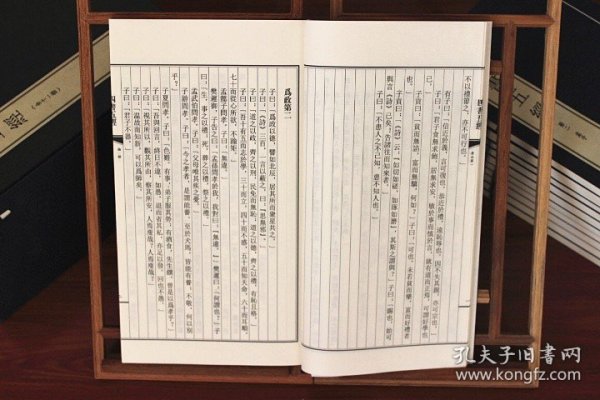 四書五經
不以禮節之，亦不可行也。」
有子曰：「信近於義，言可復也。恭近於禮，遠恥辱也。因不失其親，亦可宗也。」
子曰：「君子食無求飽，居無求安，敏於事而慎於言，就有道而正焉，可謂好學也
已。」
子貢曰：「貧而無諂，富而無驕，何如？」子曰：「可也。未若貧而樂，富而好禮者
也。」
子貢曰：「《詩》云：『如切如磋，如琢如磨。』其斯之謂與？」子曰：「賜也，始可
與言《詩》已矣！告諸往而知來者。」
子曰：「不患人之不己知，患不知人也。」
爲政第二
子曰：「爲政以德，譬如北辰，居其所而衆星共之。」
子曰：「《詩》三百，一言以蔽之，曰：『思無邪』。」
子曰：「道之以政，齊之以刑，民免而無恥；道之以德，齊之以禮，有恥且格。」
子曰：「吾十有五而志於學，三十而立，四十而不惑，五十而知天命，六十而耳順，
七十而從心所欲，不踰矩。」
孟懿子問孝。子曰：「無違。」
樊遲御，子告之曰：「孟孫問孝於我，我對曰，『無違。』」樊遲曰：「何謂也？」子
曰：「生，事之以禮；死，葬之以禮，祭之以禮。」
孟武伯問孝。子曰：「父母唯其疾之憂。」
子游問孝。子曰：「今之孝者，是謂能養。至於犬馬，皆能有養，不敬，何以別
乎？」
子夏問孝。子曰：「色難。有事，弟子服其勞；有酒食，先生饌，曾是以爲孝乎？」
子曰：「吾與回言終日，不違，如愚。退而省其私，亦足以發，回也不愚。」
子曰：「視其所以，觀其所由，察其所安，人焉廋哉？人焉廋哉？」
子曰：「溫故而知新，可以爲師矣。」
子曰：「君子不器。」
四書五經
孔夫子旧书网
www.kongfz.com